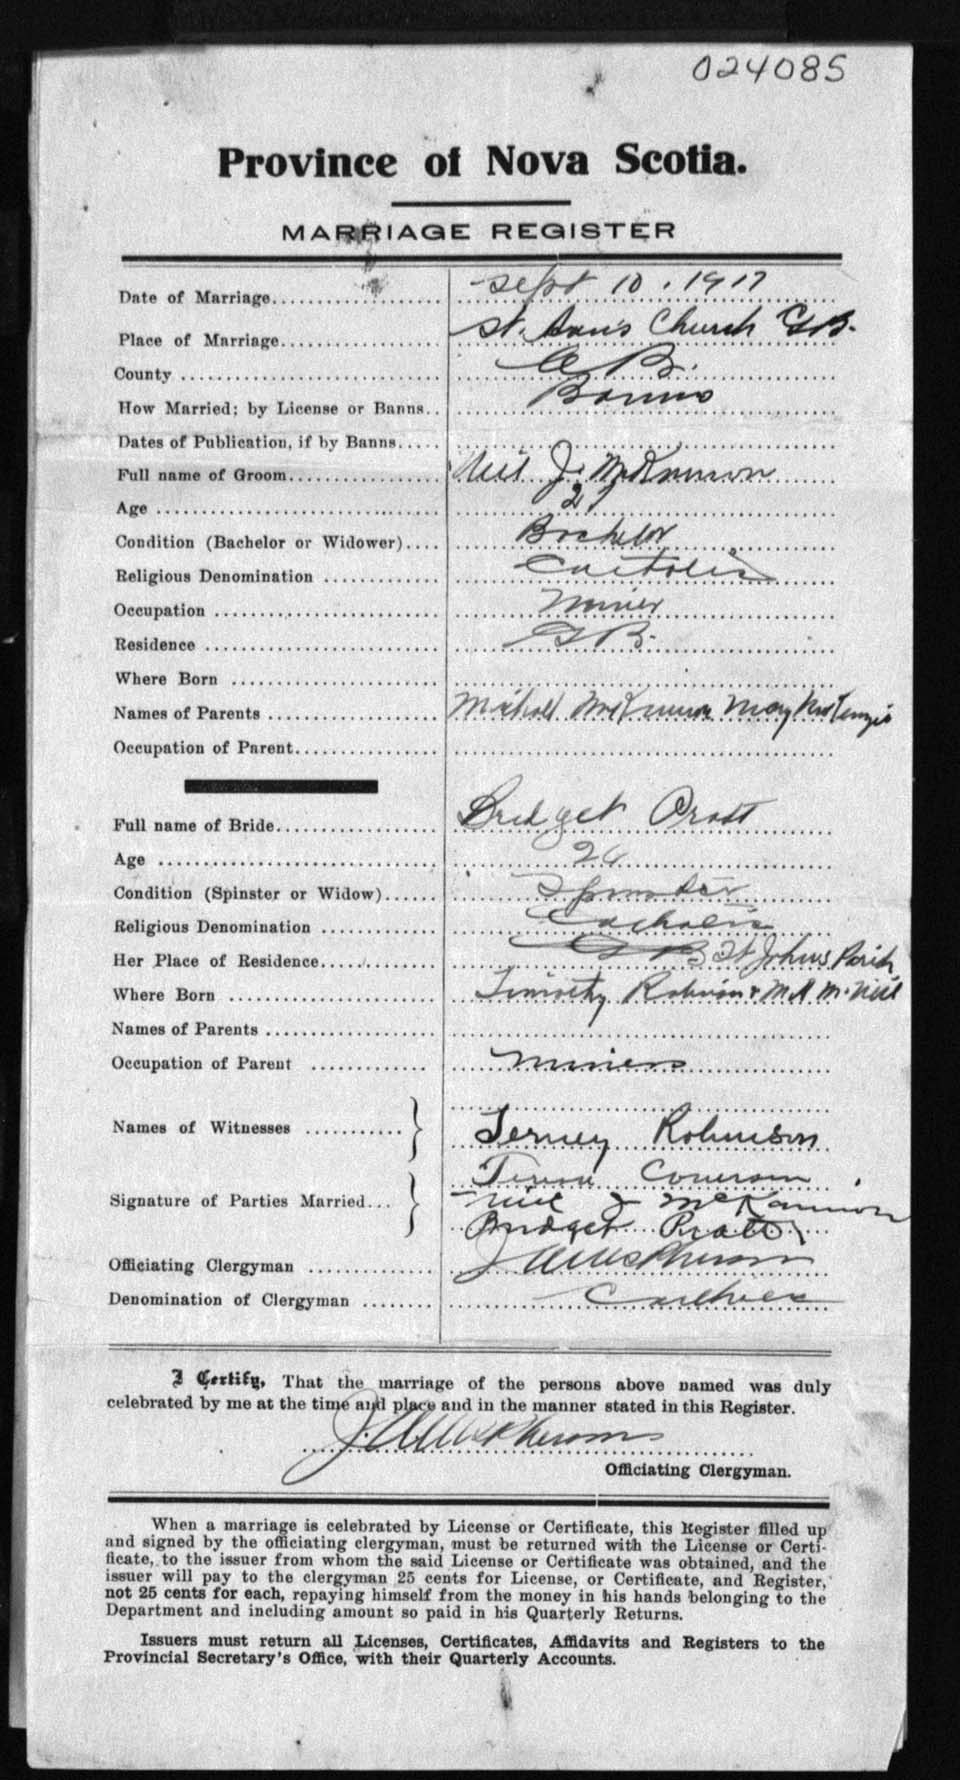 024085
Province of Nova Scotia.
MARRIAGE REGISTER
Date of Marriage Sept 10, 1917
Place of Marriage St. Ann's Church G.B.
County C B.
How Married; by License or Banns Banns
Dates of Publication, if by Banns
Full name of Groom Neil J. McKinnon
Age 27
Condition (Bachelor or Widower) Bachelor
Religious Denomination Catholic
Occupation Miner
Residence G B.
Where Born
Names of Parents Michael McKinnon Mary McKenzie
Occupation of Parent
Full name of Bride Bridget Pratt
Age 26
Condition (Spinster or Widow) Spinster
Religious Denomination Catholic
Her Place of Residence G B St Johns Parish
Where Born Timothy Robinson & M A McNeil
Names of Parents
Occupation of Parent Miners
Names of Witnesses Robinson
Signature of Parties Married Neil J McKinnon
Bridget Pratt
Officiating Clergyman J A McPherson
Denomination of Clergyman Catholic
I Certify, That the marriage of the persons above named was duly
celebrated by me at the time and place and in the manner stated in this Register.
J. A. McPherson
Officiating Clergyman.
When a marriage is celebrated by License or Certificate, this Register filled up
and signed by the officiating clergyman, must be returned with the License or Certi-
ficate, to the issuer from whom the said License or Certificate was obtained, and the
issuer will pay to the clergyman 25 cents for License, or Certificate, and Register,
not 25 cents for each, repaying himself from the money in his hands belonging to the
Department and including amount so paid in his Quarterly Returns.
Issuers must return all Licenses, Certificates, Affidavits and Registers to the
Provincial Secretary's Office, with their Quarterly Accounts.